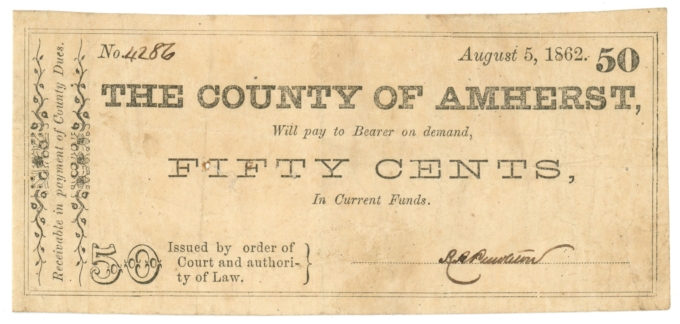 No. 4286
August 5, 1862. 50
THE COUNTY OF AMHERST,
Will pay to Bearer on demand,
FIFTY CENTS,
In Current Funds.
Receivable in payment of County Dues.
50
Issued by order of
Court and authori-
ty of Law.